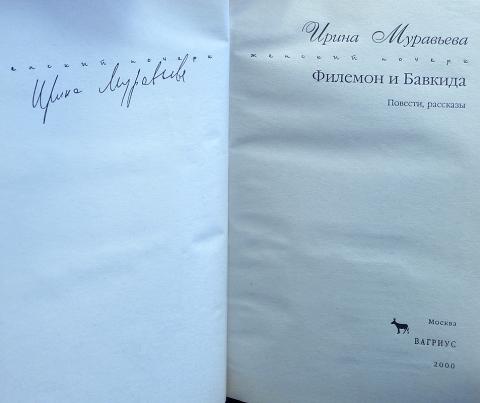 енский почерк
Ирина Муравьева
Ирина Муравьева
женский почерк
Филемон и Бавкида
Повести, рассказы
Москва
ВАГРИУС
2000